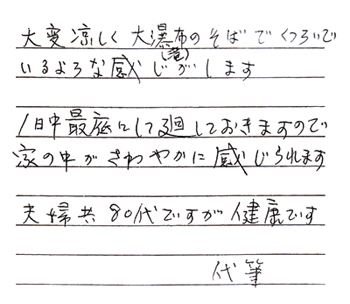 大変涼しく大瀑布のそばでくつろいで
(滝)
いるような感じがします
1日中最底にして廻しておきますので
家の中がさわやかに感じられます
夫婦共80代ですが健康です
代筆